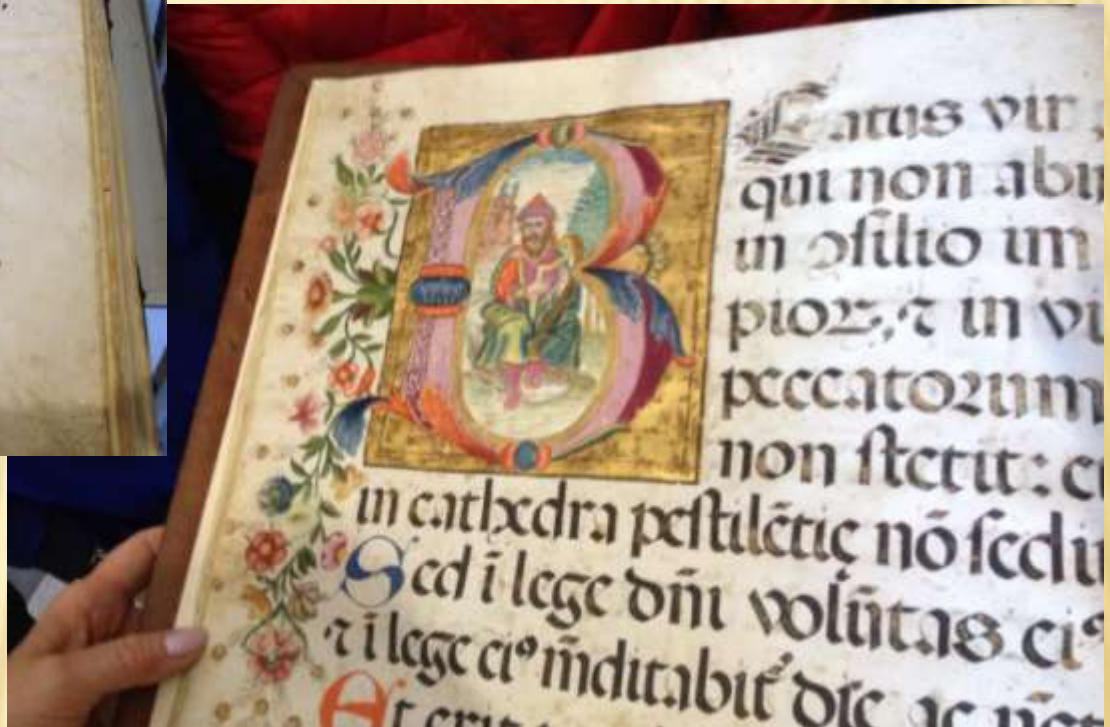 Beatus vir
qui non abi
in ↄsilio im
pioꝝ, ⁊ in vi
peccatorum
non stetit: e
in cathedra pestilētię nō sedi
Sed ī lege dñi volūtas ei⁹
⁊ ī lege ei⁹ m̄ditabit᷑ die ac
Et erit